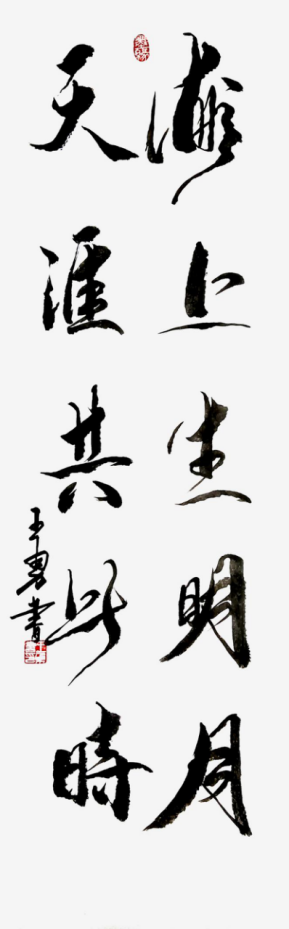 海上生明月
天涯共此時
王勇書